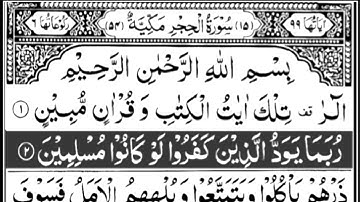 اٰیَاتُهَا ۹۹ (۱۵) سُوْرَةُ الْحِجْرِ مَكِّیَّةٌ (۵۴) رُكُوْعَاتُهَا ۶
بِسْمِ اللّٰهِ الرَّحْمٰنِ الرَّحِیْمِ
الٓرٰ ۫ قف تِلْكَ اٰیٰتُ الْكِتٰبِ وَ قُرْاٰنٍ مُّبِیْنٍ ﴿۱﴾
رُبَمَا یَوَدُّ الَّذِیْنَ كَفَرُوْا لَوْ كَانُوْا مُسْلِمِیْنَ ﴿۲﴾
ذَرْهُمْ یَاْكُلُوْا وَ یَتَمَتَّعُوْا وَ یُلْهِهِمُ الْاَمَلُ فَسَوْفَ